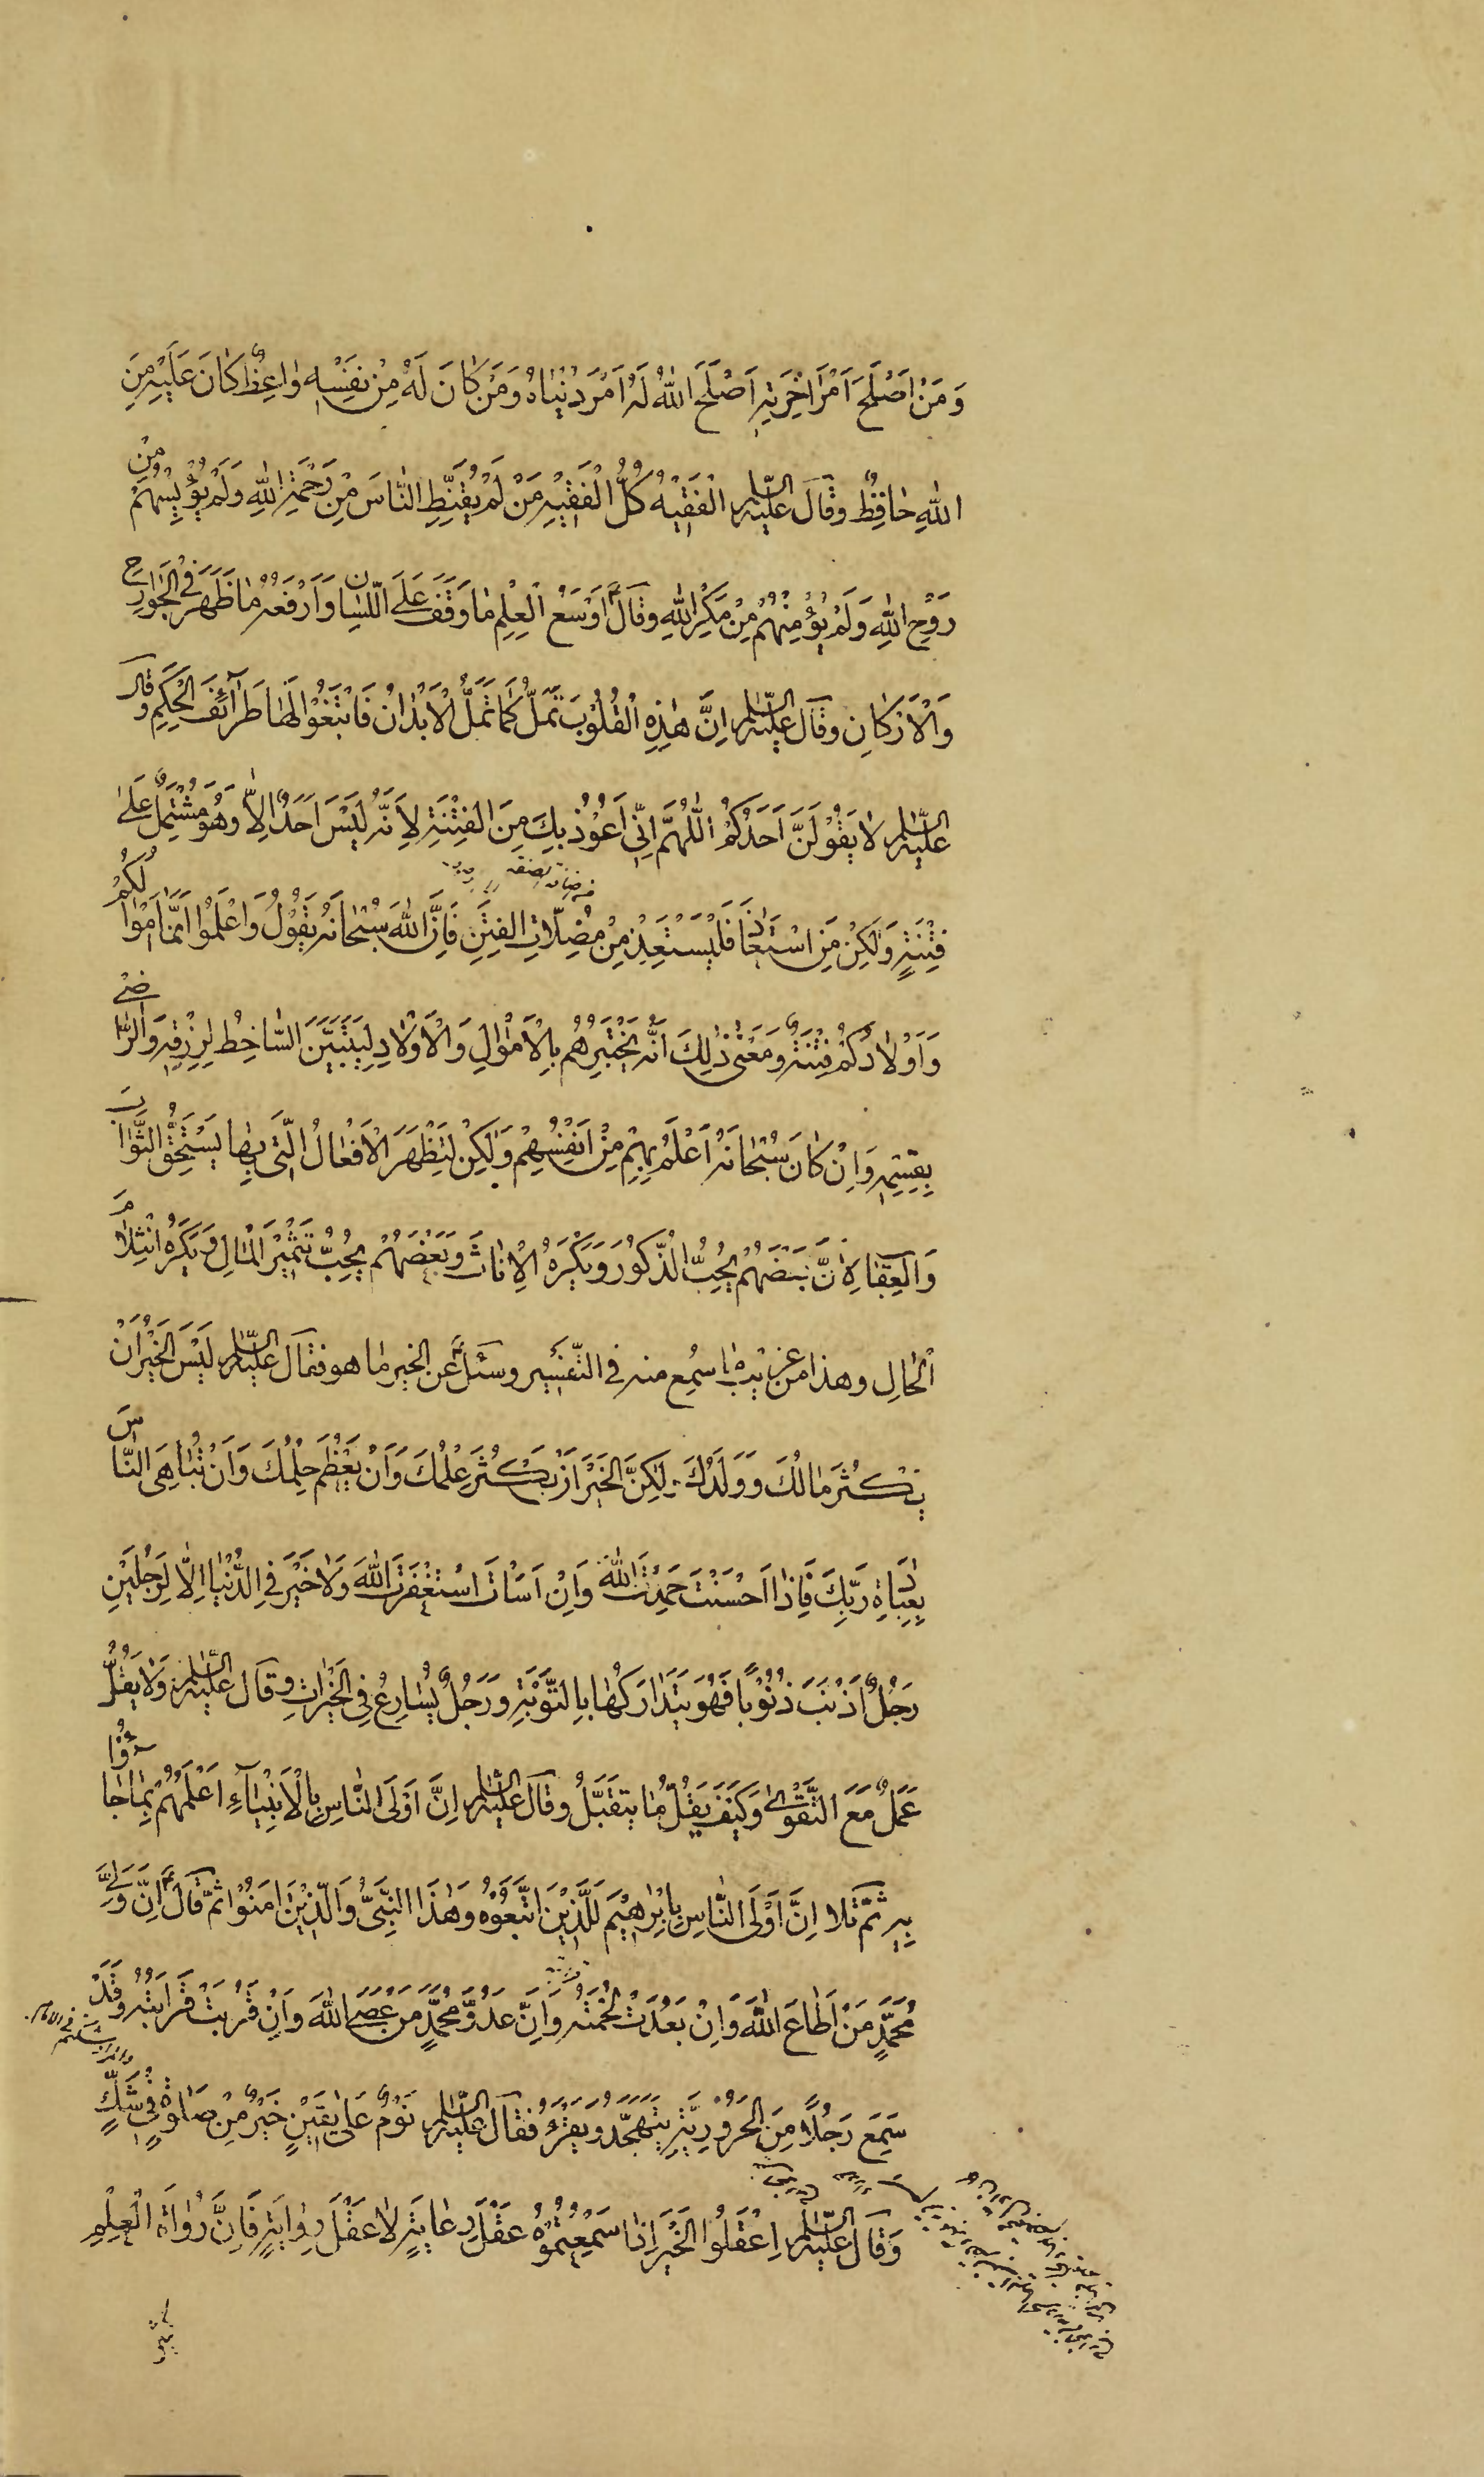 وَمَنْ اَصْلَحَ اَمْرَ اٰخِرَتِهِ اَصْلَحَ اللّٰهُ لَهُ اَمْرَ دُنْيٰاهُ وَمَنْ كٰانَ لَهُ مِنْ نَفْسِهِ وٰاعِظٌ كٰانَ عَلَيْهِ مِنَ
اللّٰهِ حٰافِظٌ وقٰالَ عليه السّلام الْفَقيْهُ كُلُّ الْفَقيْهِ مَنْ لَمْ يُقَنِّطِ النّٰاسَ مِنْ رَحْمَةِ اللّٰهِ وَلَمْ يُؤْيِسْهُمْ مِنْ
رَوْحِ اللّٰهِ وَلَمْ يُؤْمِنْهُمْ مِنْ مَكْرِ اللّٰهِ وقٰالَ ع اَوْضَعُ الْعِلْمِ مٰا وَقَفَ عَلَى اللّسٰانِ وَاَرْفَعُهُ مٰا ظَهَرَ فِى الْجَوٰارِحِ
وَالْاَرْكٰانِ وقٰال عليه السّلام اِنَّ هٰذِهِ الْقُلُوْبَ تَمَلُّ كَمٰا تَمَلُّ الْاَبْدٰانُ فَابْتَغُوْا لَهٰا طَرٰآئِفَ الْحِكَمِ وقٰال
عليه السّلام لٰا يَقُوْلَنَّ اَحَدُكُمْ اللّٰهُمَّ اِنّى اَعُوْذُ بِكَ مِنَ الفِتْنَةِ لِاَنَّهُ لَيْسَ اَحَدٌ اِلّٰا وَهُوَ مُشْتَمِلٌ عَلىٰ
فِتْنَةٍ وَلٰكِنْ مَنِ اسْتَعٰاذَ فَلْيَسْتَعِذْ مِنْ مُضِلّاتِ الفِتَنِ فَاِنَّ اللّٰهَ سُبْحٰانَهُ يَقُوْلُ وَاعْلَمُوْا اَنَّمٰا اَمْوٰالُكُمْ
وَاَوْلٰادُكُمْ فِتْنَةٌ وَمَعْنىٰ ذٰلِكَ اَنَّهُ يَخْتَبِرُهُمْ بِالْاَمْوٰالِ وَالْاَوْلٰادِ لِيَتَبَيَّنَ السّٰاخِطُ لِرِزْقِهِ وَالرّٰاضىْ
بِقِسْمِهِ وَاِنْ كٰانَ سُبْحٰانَهُ اَعْلَمُ بِهِمْ مِنْ اَنْفُسِهِمْ وَلٰكِنْ لِتَظْهَرَ الْاَفْعٰالُ الَّتى بِهٰا يُسْتَحَقُّ الثَّوٰابُ
وَالْعِقٰابُ لِاَنَّ بَعْضَهُمْ يُحِبُّ الذُّكُوْرَ وَيَكْرَهُ الْاِنٰاثَ وَبَعْضَهُمْ يُحِبُّ تَثْميْرَ الْمٰالِ وَيَكْرَهُ انْثِلٰامَ
الْحٰالِ وهذا من غريب ما سُمِع منه فى التّفسير وسئل ع عن الخير مٰا هو فقال عليه السّلام لَيْسَ الْخَيْرُ اَنْ
يَكْثُرَ مٰالُكَ وَوَلَدُكَ وَلٰكِنَّ الخَيْرَ اَنْ يَكْثُرَ عِلْمُكَ وَاَنْ يَعْظُمَ حِلْمُكَ وَاَنْ تُبٰاهِىَ النّٰاسَ
بِعِبٰادَةِ رَبِّكَ فَاِذٰا اَحْسَنْتَ حَمِدْتَ اللّٰهَ وَاِنْ اَسَأْتَ اسْتَغْفَرْتَ اللّٰهَ وَلٰا خَيْرَ فِى الدُّنْيٰا اِلّٰا لِرَجُلَيْنِ
رَجُلٌ اَذْنَبَ ذُنُوْبًا فَهُوَ يَتَدٰارَكُهٰا بِالتَّوْبَةِ وَرَجُلٌ يُسٰارِعُ فِى الْخَيْرٰاتِ وقٰال عليه السّلام وَلٰا يَقِلُّ
عَمَلٌ مَعَ التَّقْوىٰ وَكَيْفَ يَقِلُّ مٰا يُتَقَبَّلُ وقٰالَ عليه السّلام اِنَّ اَوْلَى النّٰاسِ بِالْاَنْبِيٰآءِ اَعْلَمُهُمْ بِمٰا جٰاؤُا
بِهِ ثمّ تَلا اِنَّ اَوْلَى النّٰاسِ بِاِبْرٰاهيْمَ لَلَّذيْنَ اتَّبَعُوْهُ وَهٰذَا النَّبِىُّ وَالَّذيْنَ اٰمَنُوْا ثمّ قٰالَ ع اِنَّ وَلِىَّ
مُحَمَّدٍ مَنْ اَطٰاعَ اللّٰهَ وَاِنْ بَعُدَتْ لُحْمَتُهُ وَاِنَّ عَدُوَّ مُحَمَّدٍ مَنْ عَصَى اللّٰهَ وَاِنْ قَرُبَتْ قَرٰابَتُهُ وَقَدْ
سَمِعَ رَجُلًا مِنَ الْحَرُوْرِيَّةِ يَتَهَجَّدُ وَيَقْرَءُ فقٰال عليه السّلام نَوْمٌ عَلىٰ يَقيْنٍ خَيْرٌ مِنْ صَلٰوةٍ فىْ شَكٍّ
وَقٰال عليه السّلام اِعْقَلُوا الْخَبَرَ اِذٰا سَمِعْتُمُوْهُ عَقْلَ رِعٰايَةٍ لٰا عَقْلَ رِوٰايَةٍ فَاِنَّ رُوٰاةَ الْعِلْمِ